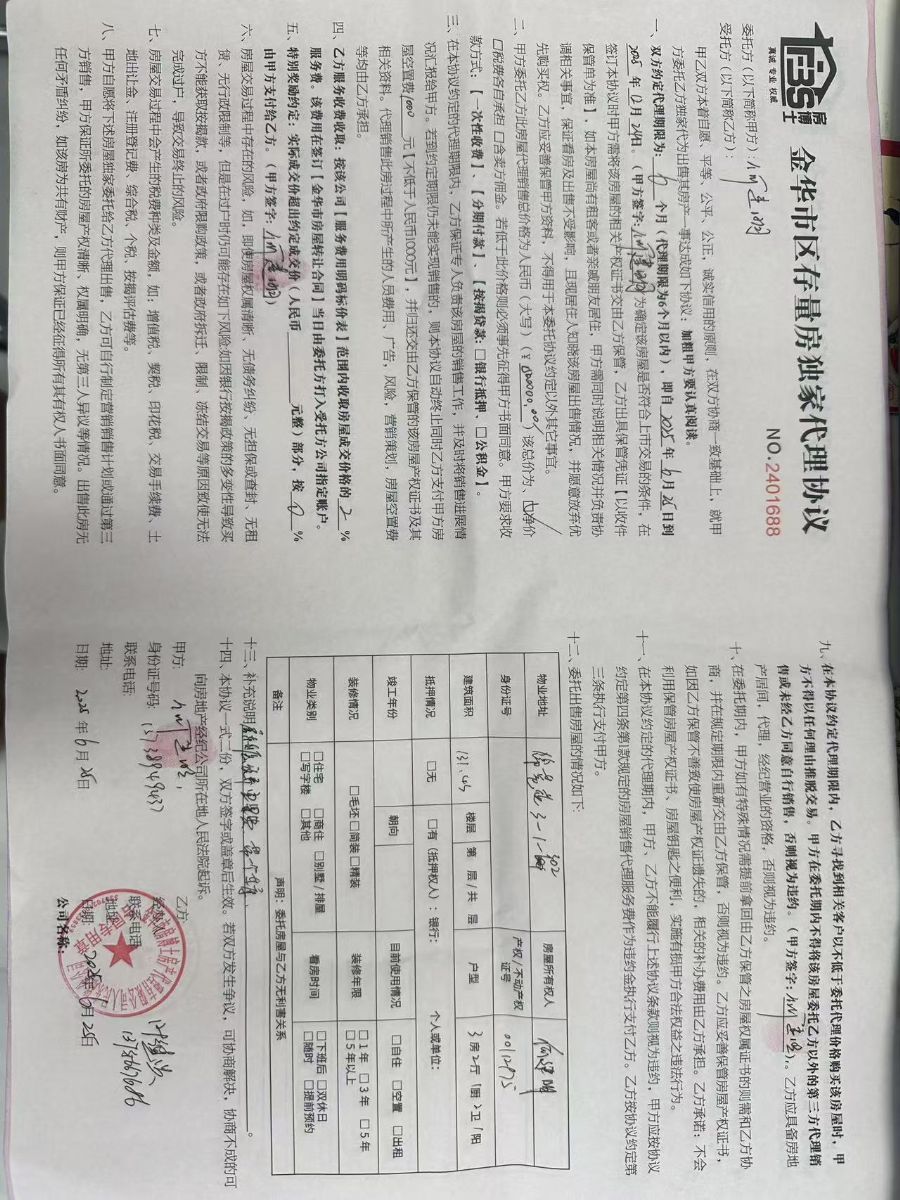 房博士
真诚 专业 权威
金华市区存量房独家代理协议
NO.2401688
委托方（以下简称甲方）：
受托方（以下简称乙方）：
甲乙双方本着自愿、平等、公平、公正、诚实信用的原则，在双方协商一致基础上，就甲
方委托乙方独家代为出售其房产一事达成如下协议：加粗甲方要认真阅读。
一、双方约定代理期限为： 个月（代理期限为6个月以内），即自 2025 年 6 月 25 日到
2025 年 12 月 24 日。（甲方签字： ）为确定该房屋是否符合上市交易的条件，在
签订本协议时甲方需将该房屋的相关产权证书交由乙方保管，乙方出具保管凭证【以收件
保管单为准】，如本房屋尚有租客或者亲戚朋友居住，甲方需同时说明相关情况并负责协
调相关事宜，保证看房及出售不受影响，且现居住人知晓该房屋出售情况，并愿意放弃优
先购买权。乙方应妥善保管甲方资料，不得用于本委托协议约定以外其它事宜。
二、甲方委托乙方此房屋代理销售总价格为人民币（大写）（¥ ）该总价为、□净价
□税费各自承担 □含卖方佣金。若低于此价格则必须事先征得甲方书面同意。甲方要求收
款方式，【一次性收费】、【分期付款】、【按揭贷款：□银行抵押，□公积金】。
三、在本协议约定的代理期限内，乙方保证专人负责该房屋的销售工作，并及时将销售进展情
况汇报给甲方。若到约定期限仍未能实现销售的，则本协议自动终止同时乙方支付甲方房
屋空置费 1000 元【不低于人民币1000元】，并归还交由乙方保管的该房屋产权证书及其
相关资料。代理销售此房过程中所产生的人员费用、广告，风险，营销策划，房屋空置费
等均由乙方承担。
四、乙方服务收费收取：按该公司【服务费用明码标价表】范围内收取房屋成交价格的 2 %
服务费。该费用在签订【金华市房屋转让合同】当日由委托方打入受托方公司指定账户。
五、特别奖励约定：实际成交价超出约定成交价（人民币 元整）部分，按 0 %
由甲方支付给乙方。（甲方签字： ）
六、房屋交易过程中存在的风险，如，即使房屋权属清晰、无债务纠纷、无担保或查封、无租
赁、无行政限制等，但是在过户时仍可能存在如下风险:如因银行按揭政策的多变性导致买
方不能获取按揭款，或者政府限购政策，或者政府拆迁、限制、冻结交易等原因致使无法
完成过户，导致交易终止的风险。
七、房屋交易过程中会产生的税费种类及金额，如：增值税、契税、印花税、交易手续费、土
地出让金、注册登记费、综合税、个税、按揭评估费等。
八、甲方自愿将下述房屋独家委托给乙方代理出售，乙方可自行制定营销销售计划或通过第三
方销售，甲方保证所委托的房屋产权清晰、权属明确，无第三人异议等情况。出售此房无
任何矛盾纠纷，如该房为共有财产，则甲方保证已经征得所有其有权人书面同意。
九、在本协议约定代理期限内，乙方寻找到相关客户以不低于委托代理价格购买该房屋时，甲
方不得以任何理由推脱交易。甲方在委托期内不得将该房屋委托乙方以外的第三方代理销
售或未经乙方同意自行销售，否则视为违约。（甲方签字： ）。乙方应具备房地
产居间，代理，经纪营业的资格，否则视为违约。
十、在委托期内，甲方如有特殊情况需提前拿回由乙方保管之房屋权属证书的则需和乙方协
商，并在规定期限内重新交由乙方保管，否则视为违约。乙方应妥善保管房屋产权证书，
如因乙方保管不善致使房屋产权证遗失的，相关的补办费用由乙方承担。乙方承诺：不会
利用保管房屋产权证书、房屋钥匙之便利，实施有损甲方合法权益之违法行为。
十一、在本协议约定的代理期内，甲方、乙方不能履行上述协议条款则视为违约，甲方应按协议
约定第四条第1款规定的房屋销售代理服务费作为违约金执行支付乙方。乙方按协议约定第
三条执行支付甲方。
十二、委托出售房屋的情况如下：
物业地址 3-1-302 房屋所有权人
身份证号 产权/不动产权证号 00112975
建筑面积 131.45 楼层 第 层/共 层 户型 3 房 2 厅 1 厨 2 卫 / 阳
抵押情况 □无 □有（抵押权人）：银行： 个人或单位：
竣工年份 朝向 目前使用情况 □自住 □空置 □出租
装修情况 □毛坯 □简装 □精装 装修年限 □1年 □3年 □5年 □5年以上
物业类别 □住宅 □商住 □别墅/排屋 □写字楼 □其他 看房时间 □下班后 □双休日 □随时 □提前预约
备注 声明：委托房屋与乙方无利害关系
十三、补充说明 。
十四、本协议一式二份，双方签字或盖章后生效。若双方发生争议，可协商解决，协商不成的可
向房地产经纪公司所在地人民法院起诉。
甲方： 乙方：
身份证号码： 经办人：
联系电话： 联系电话：
地址： 地址：
日期： 2025 年 6 月 25 日 日期： 2025 年 6 月 25 日
公司名称：